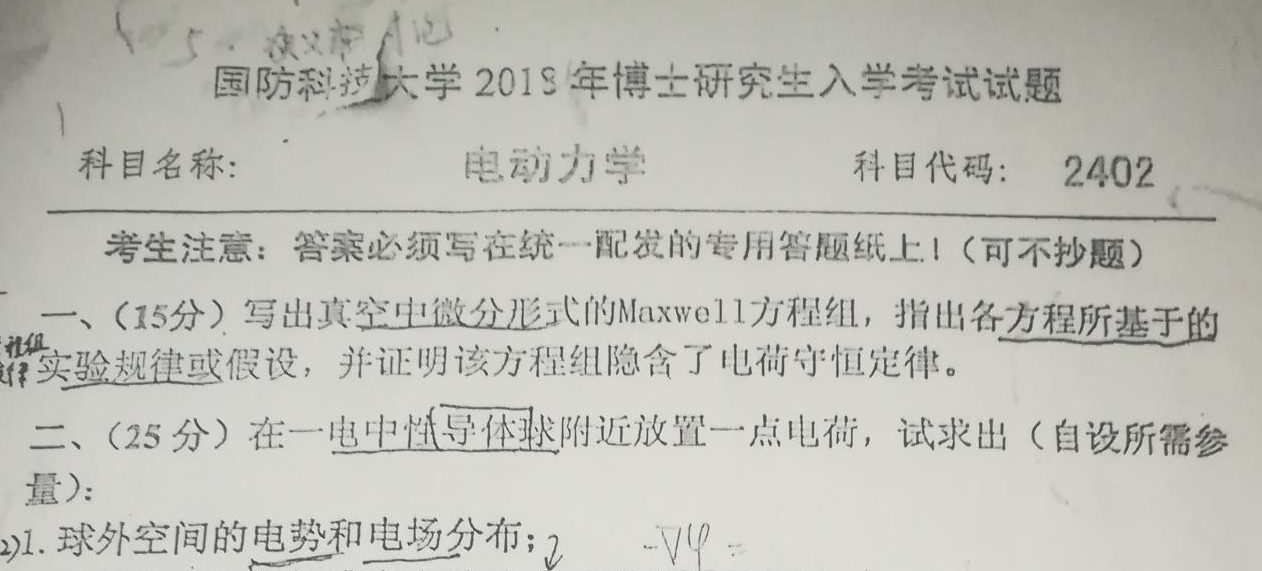 国防科技大学 2018 年博士研究生入学考试试题
科目名称: 电动力学 科目代码: 2402
考生注意：答案必须写在统一配发的专用答题纸上！（可不抄题）
一、（15分）写出真空中微分形式的Maxwell方程组，指出各方程所基于的
实验规律或假设，并证明该方程组隐含了电荷守恒定律。
二、（25 分）在一电中性导体球附近放置一点电荷，试求出（自设所需参
量）：
2)1. 球外空间的电势和电场分布; -∇φ =